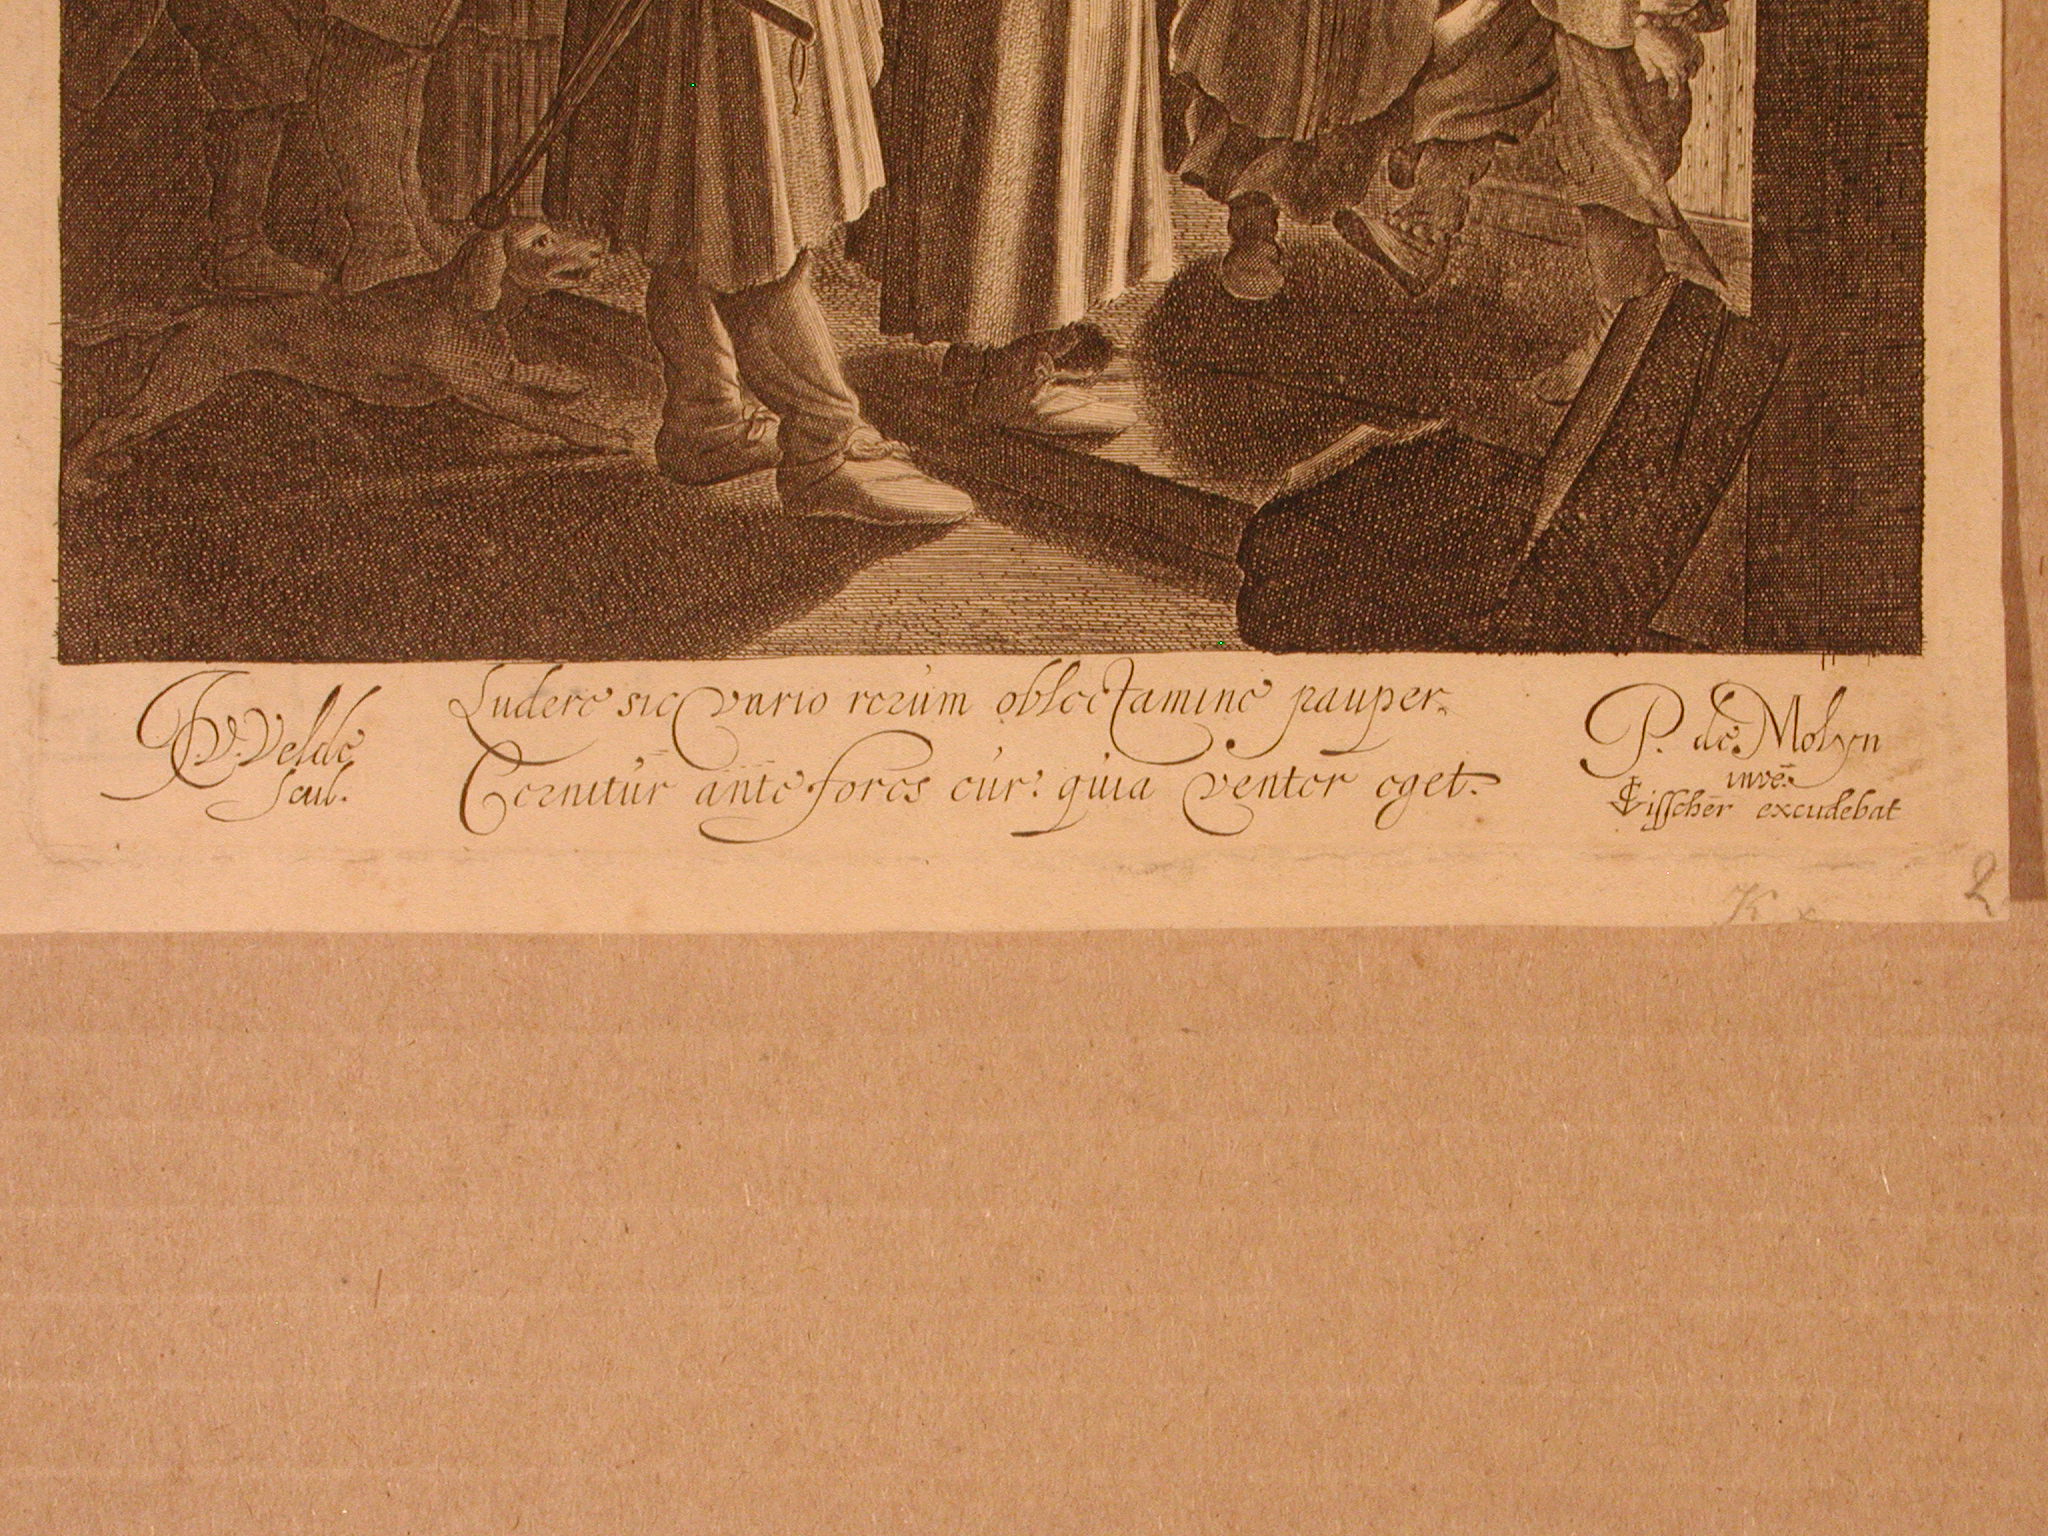 J v. Velde
scul.
Ludere sic vario rerum oblectamine pauper.
Cernitur ante fores cur? quia venter eget.
P. de Molyn
inve.
CVisscher excudebat
K x
2